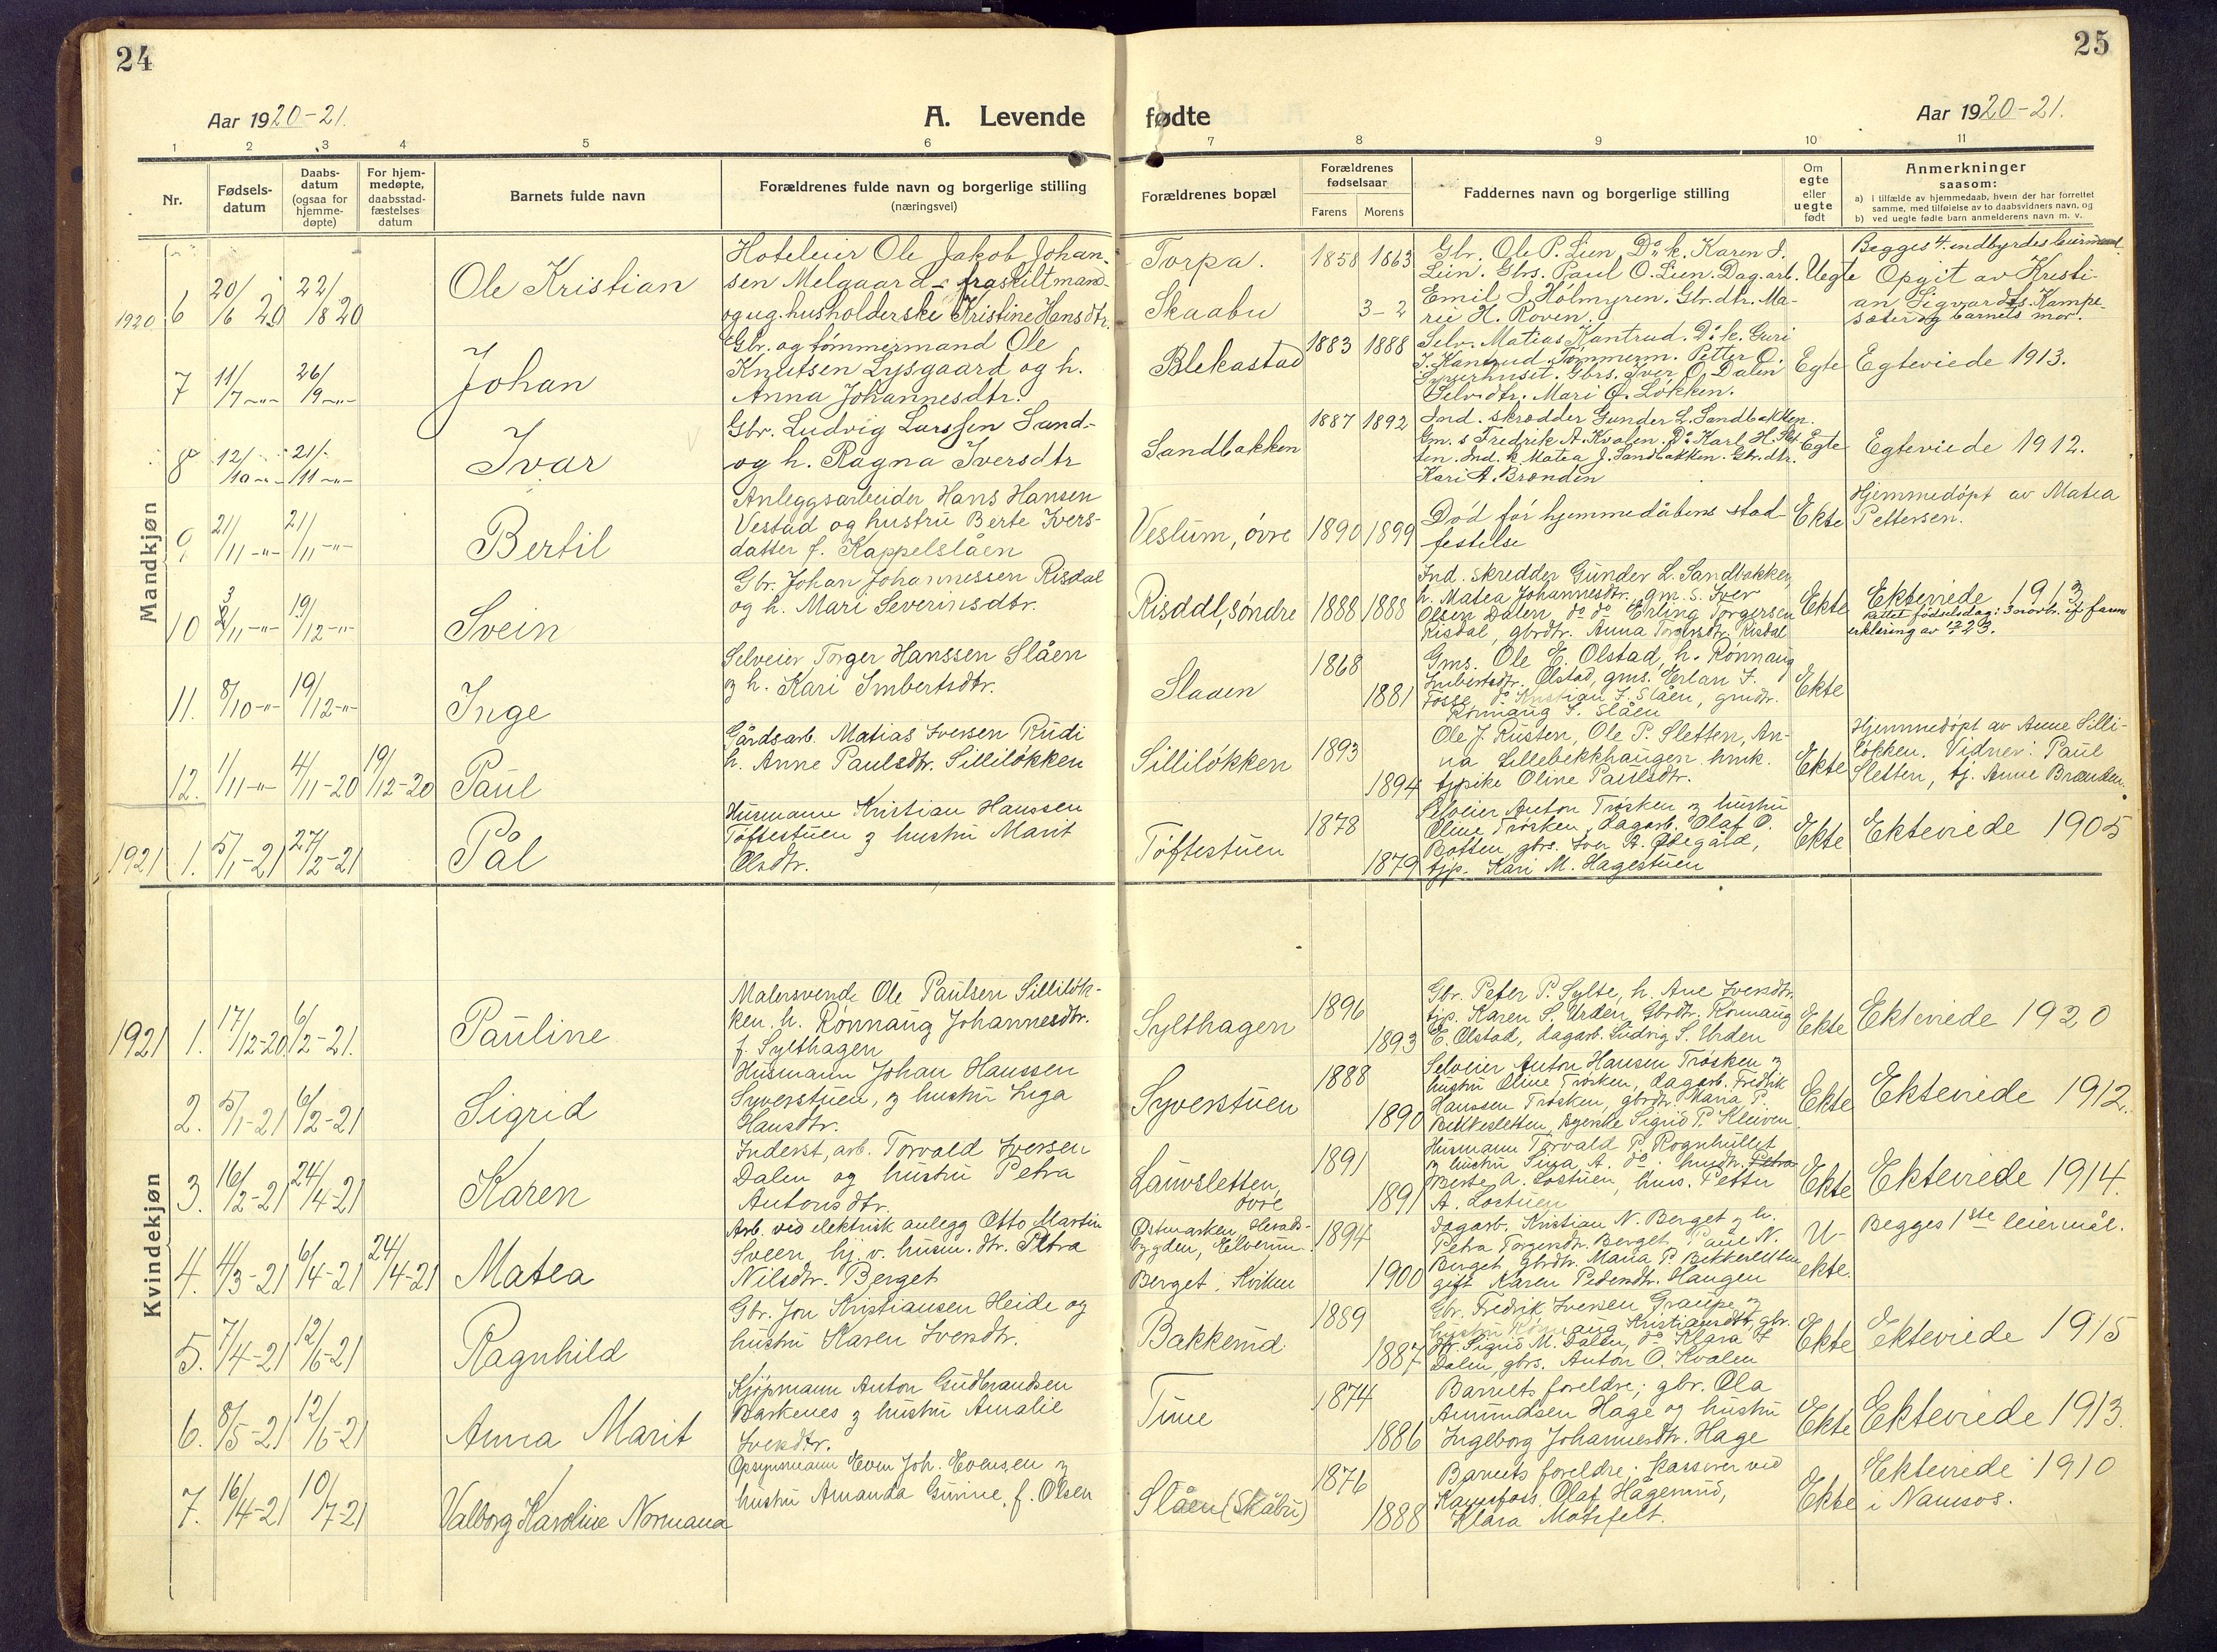 24
25
Aar 1920-21.
A. Levende
fødte
Aar 1920-21.
1 2 3 4 5 6 7 8 9 10 11
Nr.
Fødsels-
datum
Daabs-
datum
(ogsaa for
hjemme-
døpte)
For hjem-
medøpte,
daabsstad-
fæstelses
datum
Barnets fulde navn
Forældrenes fulde navn og borgerlige stilling
(næringsvei)
Forældrenes bopæl
Forældrenes
fødselsaar
Farens Morens
Faddernes navn og borgerlige stilling
Om
egte
eller
uegte
født
Anmerkninger
saasom:
a) i tilfælde av hjemmedaab, hvem der har forrettet
samme, med tilføielse av to daabsvidners navn, og
b) ved uegte fødte barn anmelderens navn m. v.
Mandkjøn
1920 6 20/6 20 22/8 20
Ole Kristian
Hoteleier Ole Jakob Johan-
sen Melgaard - fraskilt mand-
og ug. husholderske Kristine Hansdtr.
Torpa.
Skaabu
1858 1863
3-2
Gbr. Ole P. Lien. Do k. Karen J.
Lien. Gbrs. Paul O. Lien. Dag.arb.
Emil J. Holmyren. Gbr.dtr. Ma-
rie H. Roven.
Uegte
Begges 4. indbyrdes leiermaal.
Opgit av Kristi-
an Sigvardts. Kampe-
sæter og barnets mor.
7 11/7 -"- 26/9 -"-
Johan
Gbr. og tømmermand Ole
Knutsen Lysgaard og h.
Anna Johannesdtr.
Blekastad
1883 1888
Selv. Matias Kantrud. Do k. Guri
J. Kantrud. Tømmerm. Petter O.
Syverhuset. Gbrs. Iver O. Dalen
Selv.dtr. Mari O. Løkken.
Egte
Egteviede 1913.
8 12/10 -"- 21/11 -"-
Ivar
Gbr. Ludvig Larssen Sand-
og h. Ragna Iversdtr
Sandbakken
1887 1892
Ind. skrædder Gunder L. Sandbakken.
Gm. s Fredrik A. Kvolen. Do Karl H. Slet
ten. Ind. k. Matea J. Sandbakken. Gbr.dtr.
Kari A. Brænden
Egte
Egteviede 1912.
9 21/11 -"- 21/11 -"-
Bertil
Anleggsarbeider Hans Hansen
Vestad og hustru Berte Ivers-
datter f. Kappelslåen
Veslum, øvre
1890 1899
Død før hjemmedåbens stad-
festelse
Ekte
Hjemmedøpt av Matea
Pettersen.
10 3/11 -"- 19/12 -"-
Svein
Gbr. Johan Johannessen Risdal
og h. Mari Severinsdtr.
Risdal, søndre
1888 1888
Ind. skredder Gunder L. Sandbakken
h. Matea Johannesdtr. gm.s. Iver
Olsen Dalen, do do Erling Torgersen
Risdal, gbrdtr. Anna Torgersdtr. Risdal
Ekte
Ekteviede 1913
Rettet fødselsdag: 3 novbr. ifr. farens
erklering av 12/7 23.
11. 8/10 -"- 19/12 -"-
Inge
Selveier Torger Hanssen Slåen
og h. Kari Imbertsdtr.
Slaaen
1868
1881
Gms. Ole E. Olstad, h. Rønnaug
Imbertsdtr. Olstad, gms. Erlan I.
Fosse, do Kristian T. Slåen, gmdtr.
Rønnaug T. Slåen
Ekte
12. 1/11 -"- 4/11-20 19/12-20
Paul
Gårdsarb. Matias Iversen Rudi
h. Anne Paulsdtr. Silliløkken
Silliløkken
1893
1894
Ole J. Rusten, Ole P. Sletten, An-
na Lillebekkhaugen hmk.
tjpike Oline Paulsdtr.
Ekte
Hjemmedøpt av Anne Silli-
løkken. Vidner: Paul
Sletten, tj. Anne Brænden.
1921 1. 5/1-21 27/2-21
Pål
Husmann Kristian Hanssen
Tøftestuen og hustru Marit
Olsdtr.
Tøftestuen
1878
1879
Selveier Anton Trøsken og hustru
Oline Trøsken, dagarb. Olaf O.
Botten, gbrs. Iver A. Ødegård,
tjp. Kari M. Hagestuen
Ekte
Ekteviede 1905
Kvindekjøn
1921 1. 17/12-20 6/2-21.
Pauline
Malersvend Ole Paulsen Silliløk-
ken. h. Rønnaug Johannesdtr.
f. Sylthagen
Sylthagen
1896
1893
Gbr. Peter P. Sylte, h. Ane Iversdtr.
tjp. Karen S. Urden, Gbrdtr. Rønnaug
E. Olstad, dagarb. Ludvig S. Urden
Ekte
Ekteviede 1920
2. 5/1-21 6/2-21
Sigrid
Husmann Johan Hanssen
Syverstuen, og hustru Inga
Hansdtr.
Syverstuen
1888
1890
Selveier Anton Hansen Trøsken og
hustru Oline Trøsken, dagarb. Fredrik
Hanssen Trøsken, gbrdtr. Maria P.
Bekkesletten, syerske Sigrid P. Kleiven
Ekte
Ekteviede 1912.
3. 16/2-21 24/4-21
Karen
Inderst, arb. Torvald Iversen
Dalen og hustru Petra
Antonsdtr.
Lauvsletten,
øvre
1891
1891
Husmann Torvald P. Rognhullet
og hustru Siga A. do. husdtr. Petra
Berte A. Lostuen, hus. Petter
A. Lostuen
Ekte
Ekteviede 1914.
4. 4/3-21 6/4-21 24/4-21
Matea
Arb. ved elektrisk anlegg Otto Martin
Sveen, hj. v. husm. dtr. Petra
Nilsdtr. Berget
Østmarken, Herads-
bygden, Elverum.
Berget, Kvikne
1894
1900
Dagarb. Kristian N. Berget og h.
Petra Torgersdtr. Berget, Paul N.
Berget, gbrdtr. Maria P. Bekkesletten
gift Karen Pedersdtr. Haugen
U-
ekte.
Begges 1ste leiermål.
5. 7/4-21 12/6-21
Ragnhild
Gbr. Jon Kristiansen Heide og
hustru Karen Iversdtr.
Bakkerud
1889
1887
Gbr. Fredrik Iversen Graupe og
hustru Rønnaug Kristiansdtr, gbr.
dtr. Sigrid M. Dalen, do Klara I
Dalen, gbrs. Anton O. Kvolen
Ekte
Ekteviede 1915
6. 8/5-21 12/6-21
Anna Marit
Kjøpmann Anton Gudbrandsen
Barkenes og hustru Amalie
Iversdtr.
Tune
1874
1886
Barnets foreldre; gbr. Ola
Amundsen Hage og hustru
Ingeborg Johannesdtr. Hage
Ekte
Ekteviede 1913.
7. 16/4-21 10/7-21
Valborg Karoline Normana
Opsynsmann Even Joh. Evensen og
hustru Amanda Gunine, f. Olsen
Slåen (Skåbu)
1876
1888
Barnets foreldre; kasserer ved
Olaf Hagerud,
Klara Motzfelt.
Ekte
Ekteviede 1910
i Namsos.